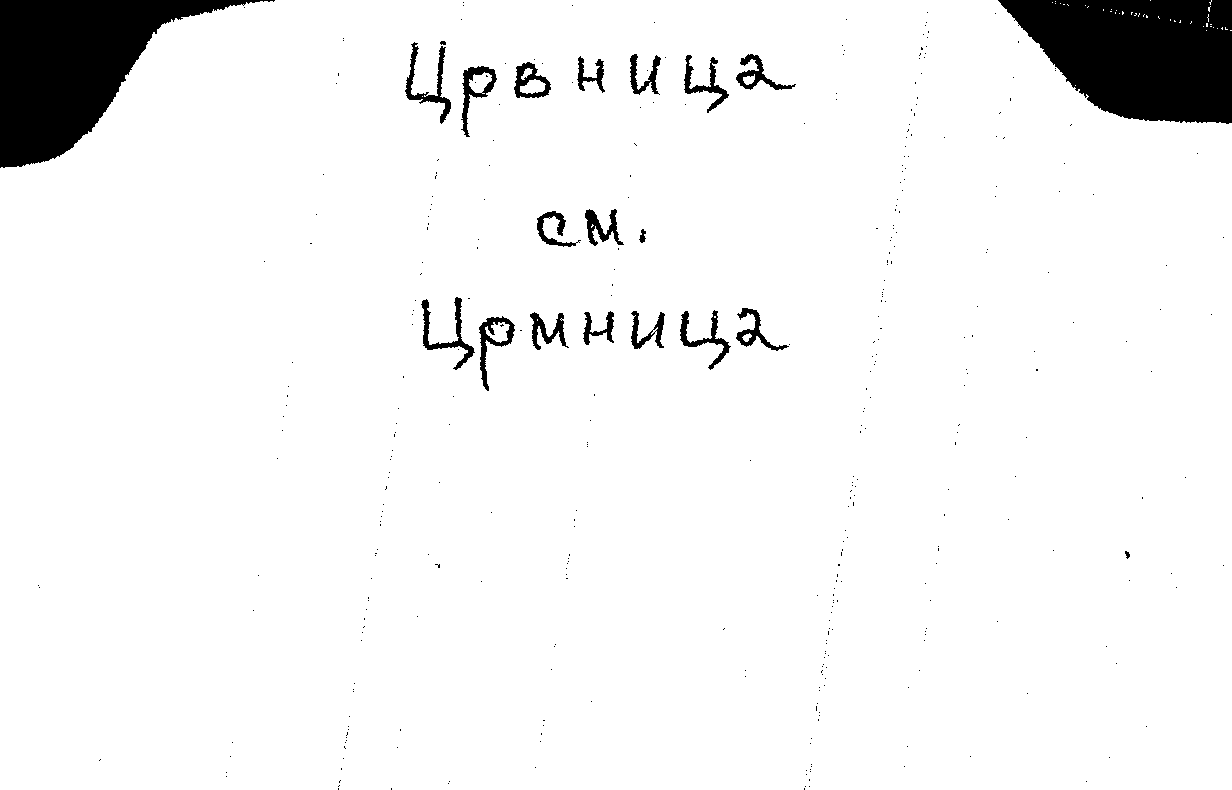 Црвница
см.
Црмница